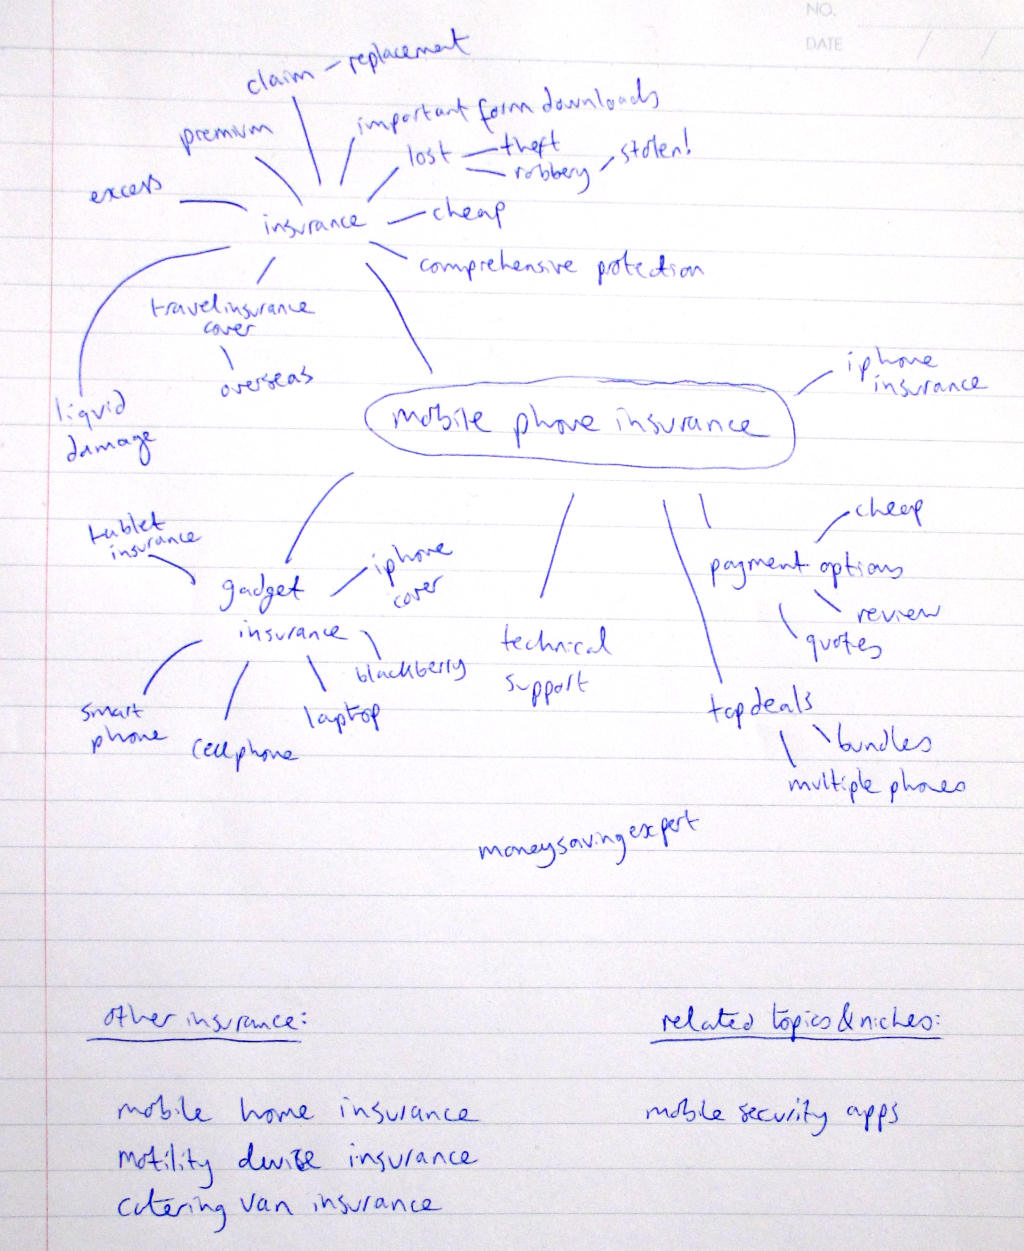 NO.
DATE
claim - replacement
premium
important form downloads
lost
theft
robbery
stolen!
excess
insurance
cheap
comprehensive protection
travel insurance
cover
overseas
liquid
damage
iphone
insurance
mobile phone insurance
tablet
insurance
gadget
insurance
iphone
cover
blackberry
laptop
cell phone
smart
phone
technical
support
cheap
payment options
review
quotes
top deals
bundles
multiple phones
moneysavingexpert
other insurance:
related topics & niches:
mobile home insurance
mobile security apps
motility device insurance
catering van insurance